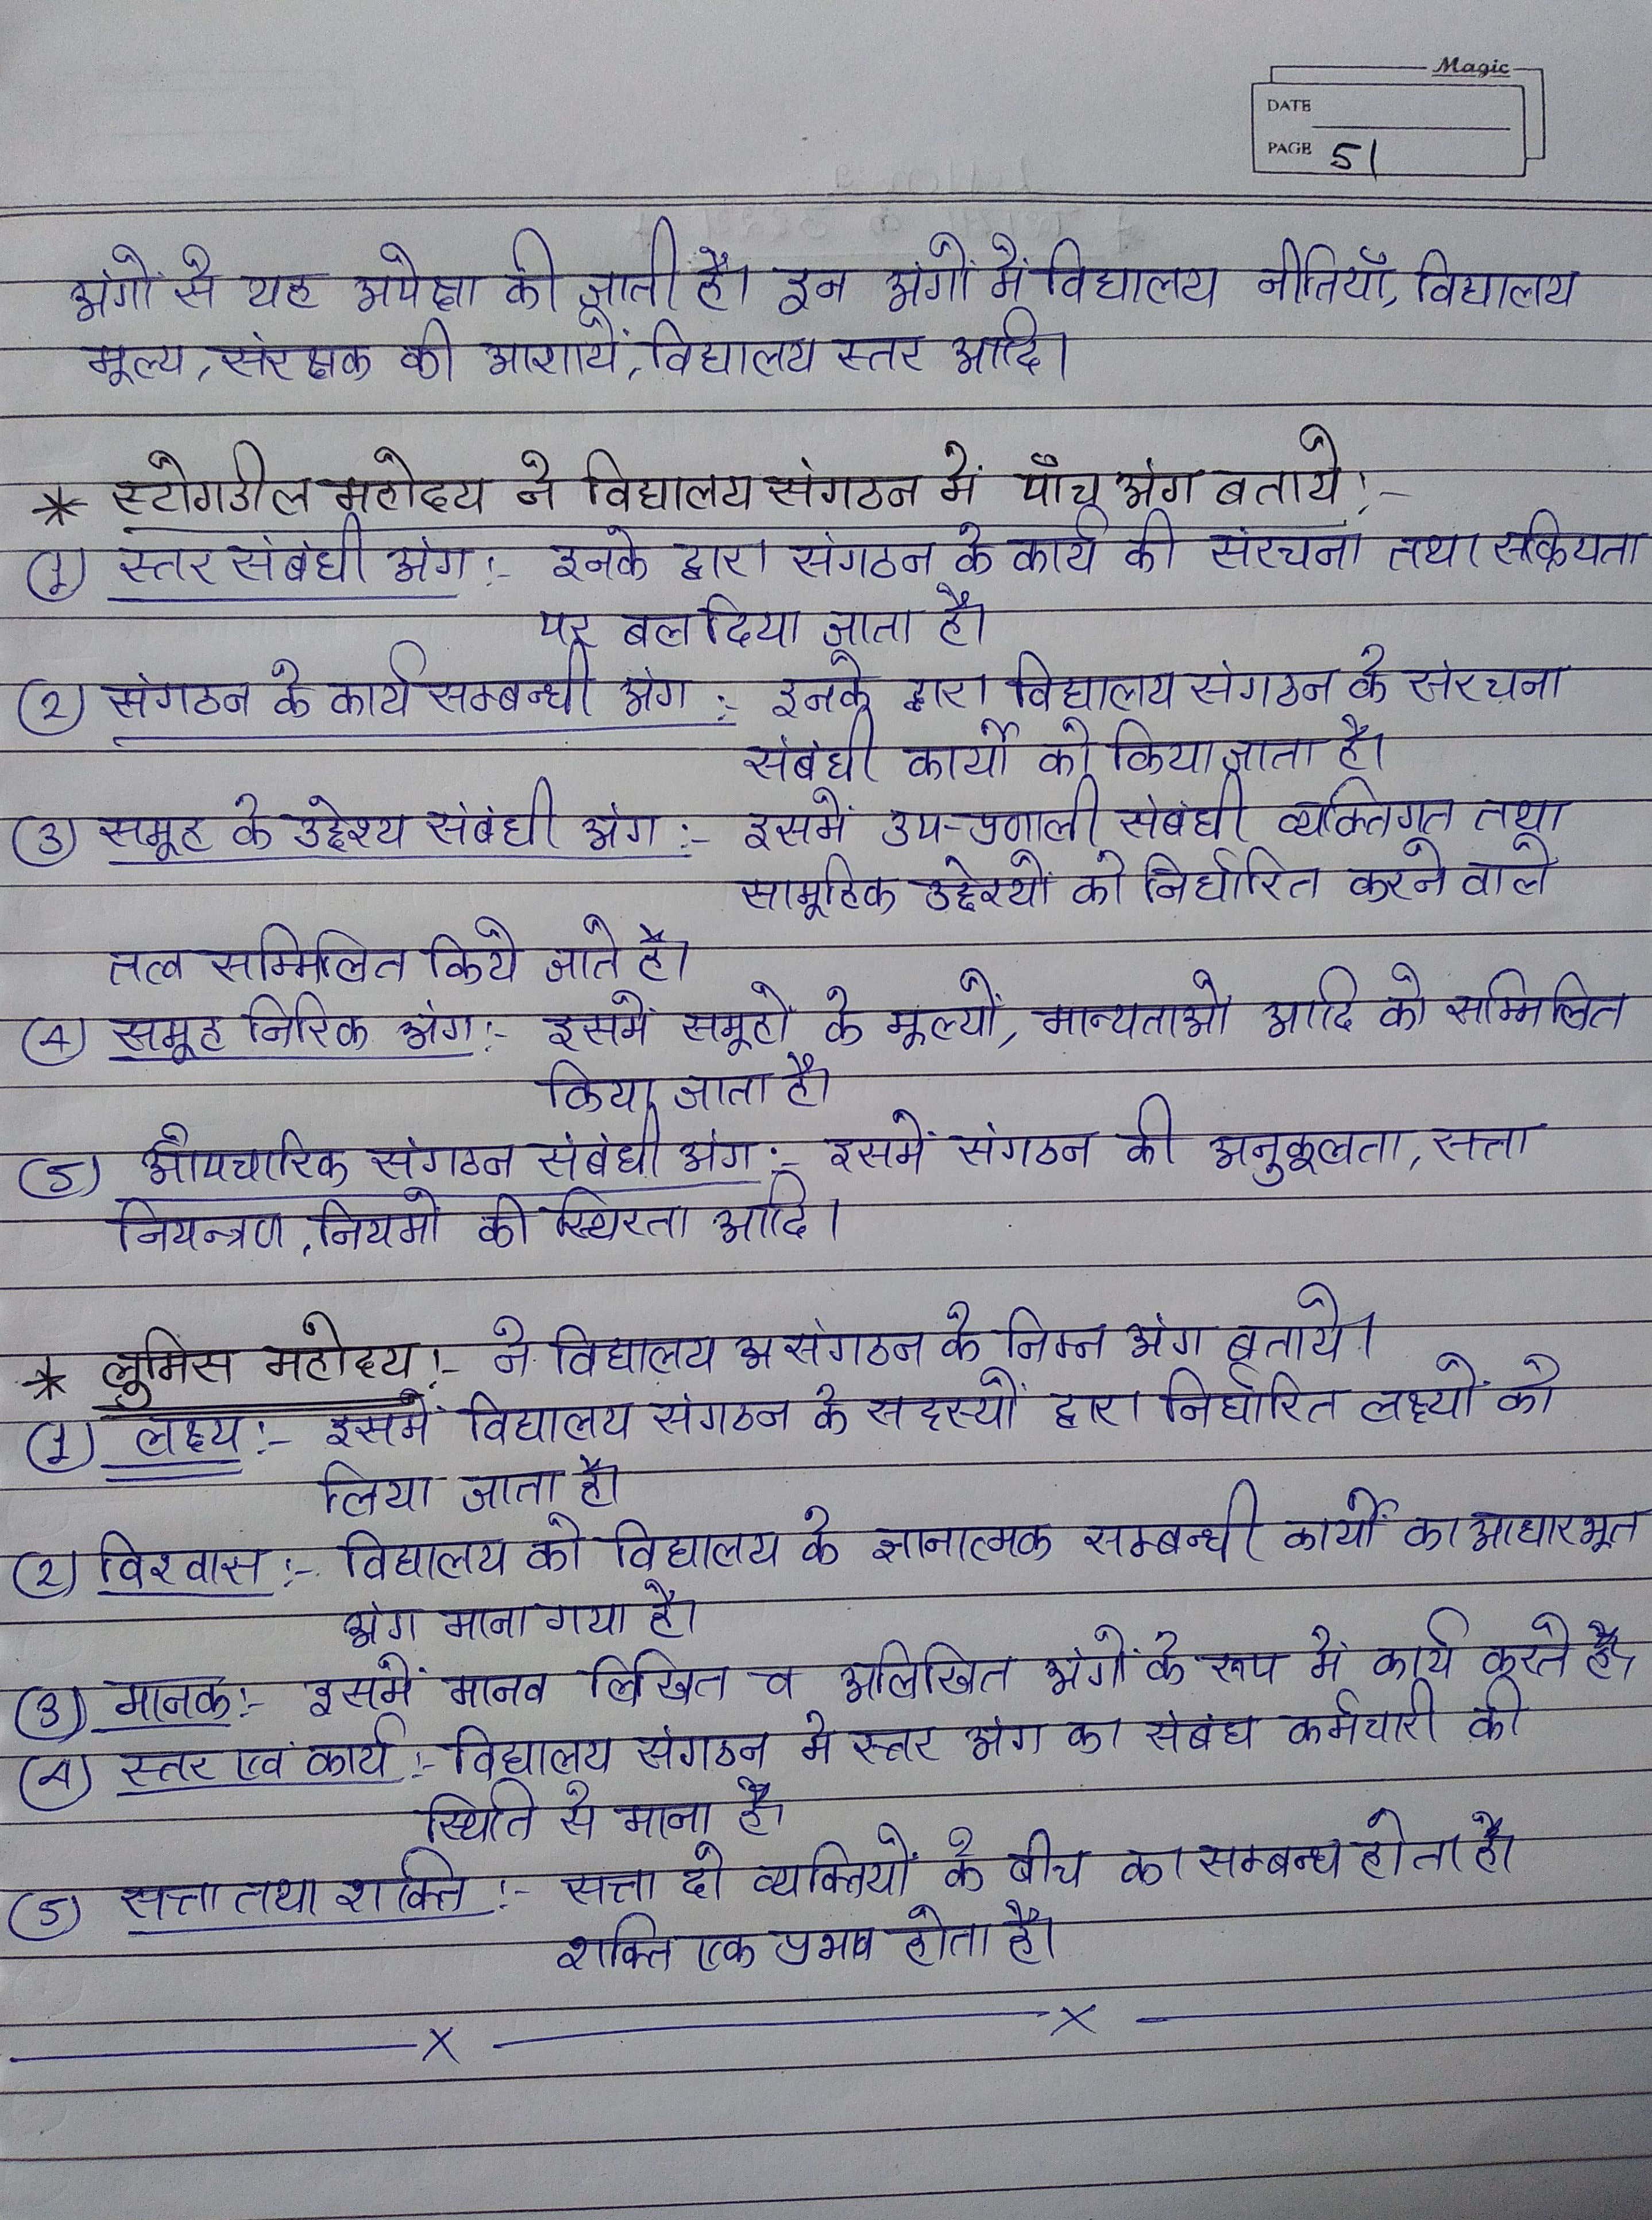 Magic
DATE
PAGE 51
अंगों से यह अपेक्षा की जाती है। इन अंगों में विद्यालय नीतियाँ, विद्यालय
मूल्य, संरक्षक की आशायें, विद्यालय स्तर आदि।
* स्टोगडील महोदय ने विद्यालय संगठन में पाँच अंग बताये :-
(1) स्तर संबंधी अंग :- इनके द्वारा संगठन के कार्य की संरचना तथा सक्रियता
पर बल दिया जाता है।
(2) संगठन के कार्य सम्बन्धी अंग :- इनके द्वारा विद्यालय संगठन के संरचना
संबंधी कार्यों को किया जाता है।
(3) समूह के उद्देश्य संबंधी अंग :- इसमें उप-प्रणाली संबंधी व्यक्तिगत तथा
सामूहिक उद्देश्यों को निर्धारित करने वाले
तत्व सम्मिलित किये जाते है।
(4) समूह निरिक अंग :- इसमें समूहों के मूल्यों, मान्यताओं आदि को सम्मिलित
किया जाता है।
(5) औपचारिक संगठन संबंधी अंग :- इसमें संगठन की अनुकूलता, सत्ता
नियन्त्रण, नियमों की स्थिरता आदि।
* लुमिस महोदय :- ने विद्यालय अ संगठन के निम्न अंग बताये।
(1) लक्ष्य :- इसमें विद्यालय संगठन के सदस्यों द्वारा निर्धारित लक्ष्यों को
लिया जाता है।
(2) विश्वास :- विद्यालय को विद्यालय के ज्ञानात्मक सम्बन्धी कार्यों का आधारभूत
अंग माना गया है।
(3) मानक :- इसमें मानव लिखित व अलिखित अंगों के रूप में कार्य करते है,
(4) स्तर एवं कार्य :- विद्यालय संगठन में स्तर अंग का संबंध कर्मचारी की
स्थिति से माना है।
(5) सत्ता तथा शक्ति :- सत्ता दो व्यक्तियों के बीच का सम्बन्ध होता है।
शक्ति एक प्रभाव होता है।
x x